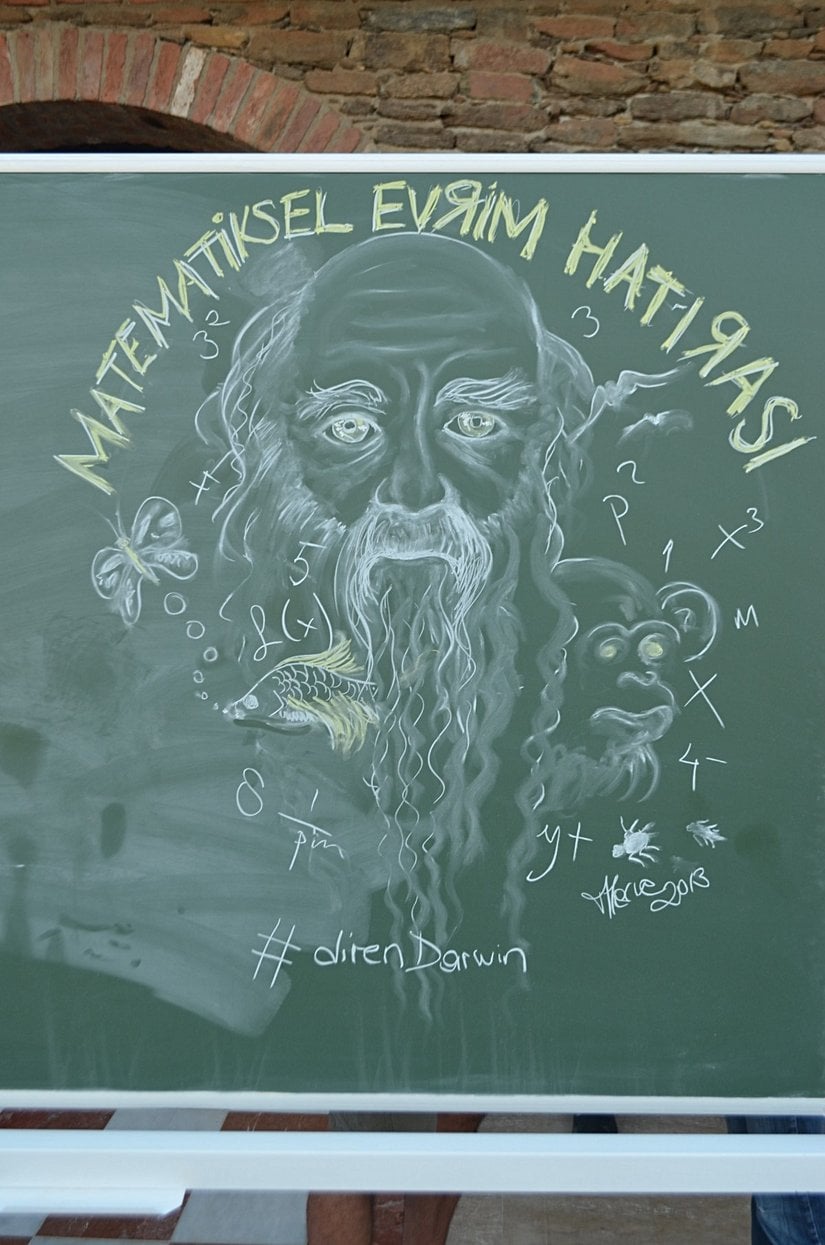 MATEMATİKSEL EVRİM HATIRASI
3²
3
x
P
x³
5
1
f(x)
M
X
4-
8
1
y+
Merve 2013
# direnDarwin